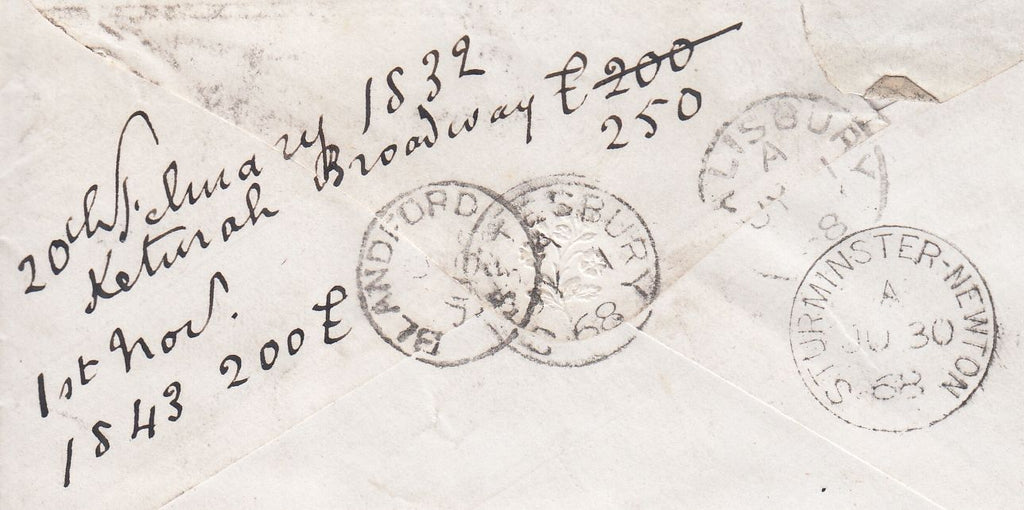 20th February 1832
Keturah Broadway £ 200
250
1st Nov.
1843 200 £
BLANDFORD
SHAFTESBURY
68
ALISBURY
A
8
STURMINSTER-NEWTON
A
JU 30
68